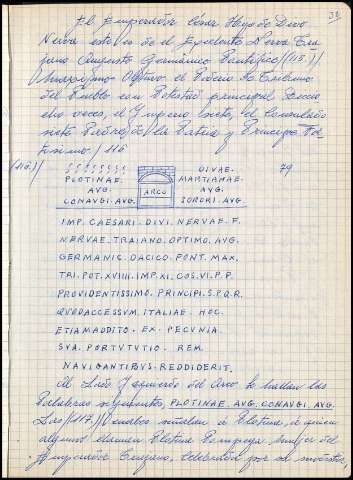 39
El Emperador César Hijo de Divo
Nerva esto es de el Excelente Nerva Tra
jano Augusto Germánico Pontífice/(115)/
Maximo Obtuvo el Poder de Tribuno
del Pueblo con Potestad principal Diecio
cho veces, el Imperio siete, el Consulado
siete Padre de la Patria y Principe
/116
(116)/
79
PLOTINAE.
AVG.
CONAVGI.AVG.
ARCO
DIVAE.
MARTIANAE.
AVG.
SORORI.AVG.
IMP.CAESARI.DIVI.NERVAE.F.
NERVAE.TRAIANO.OPTIMO.AVG.
GERMANIC.DACICO.PONT.MAX.
TRI.POT.XVIIII.IMP.XI.COS.VI.P.P.
PROVIDENTISSIMO.PRINCIPI.S.P.Q.R.
QVODACCESSVM.ITALIAE.HOC.
ETIAMADDITO.EX.PECVNIA.
SVA.PORTVTVTIO.REM.
NAVIGANTIBVS.REDDIDERIT.
Al Lado Izquierdo del Arco se hallan las
Palabras siguientes, PLOTINAE.AVG.CONAVGI.AVG.
Las/(117)/ señalan a Plotina, a quien
algunos llaman Plotina Pompeya mujer del
Emperador Trajano, celebrada por su modestia,